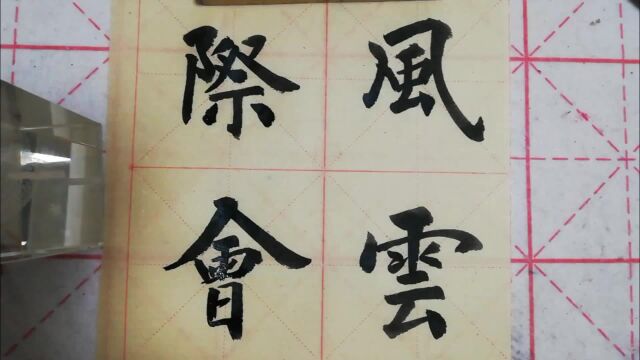 風雲
際會